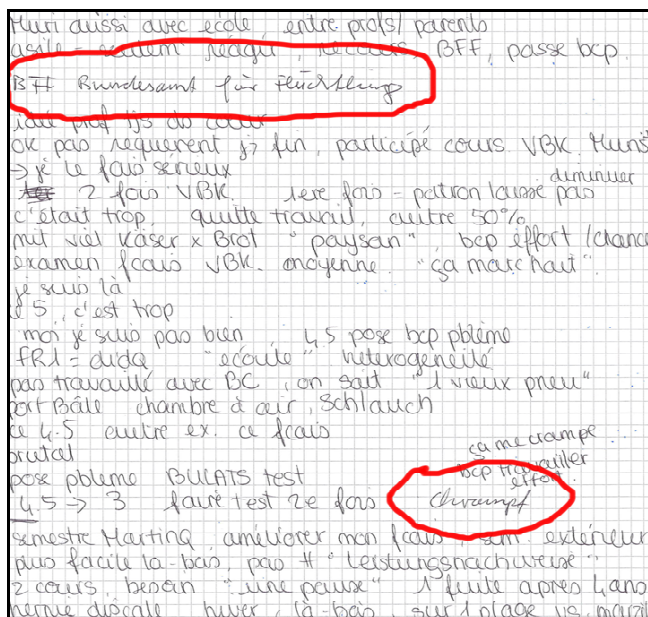 Muri aussi avec école entre profs/parents
asile = réagir, recours, BFF, passe bcp.
Bundesamt für Flüchtling
prof tjs de coeur
ok pas requérent js fin, participé cours VBK. Muris
→ je le fais sérieux
diminuer
2 fois VBK. 1ere fois = patron laisse pas
c'était trop quitte travail, autre 50%
mit viel Käser x Brot "paysan", bcp effort/chance
examen fcais VBK. moyenne "ça marchait".
je suis là
5, c'est trop
moi je suis pas bien, 4,5 pose bcp pblème
FR1 = dida "écoute" hétérogénéité
pas travaillé avec BC, on sait "1 vieux pneu"
Bâle chambre à air, Schlauch
ce 4.5 autre ex. ce fcais
brutal
ça me crampe...
pose pblème BULATS test bcp travailler
effort.
4.5 → 3 faire test 2e fois Chrampf
semestre Martina améliorer mon fcais extérieur
plus facile là-bas, pas # "Leistungsnachweise"
2 cours, besoin "une pause" 1 fuite après 4 ans
hernie discale hiver, là-bas, sur 1 plage vs.